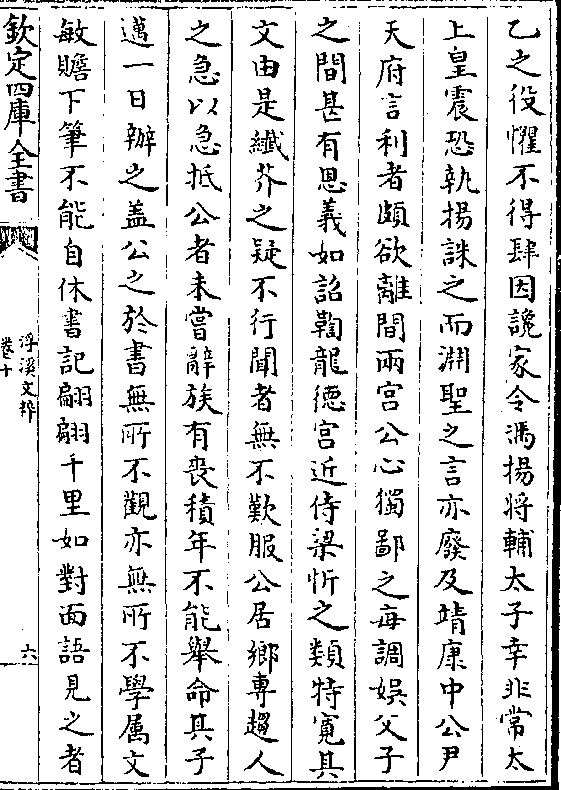 乙之役懼不得肆因讒家令馮揚將輔太子幸非常太
上皇震恐執揚誅之而淵聖之言亦廢及靖康中公尹
天府言利者頗欲離間兩宫公心獨鄙之每調娯父子
之間甚有恩義如詔鞫龍德宫近侍梁忻之類特寛其
文由是纎芥之疑不行聞者無不歎服公居鄉專趨人
之急以急抵公者未嘗辭族有喪積年不能舉命其子
邁一日辦之盖公之於書無所不觀亦無所不學属文
敏贍下筆不能自休書記翩翩千里如對面語見之者
欽定四庫全書
浮溪文粹
卷十
六